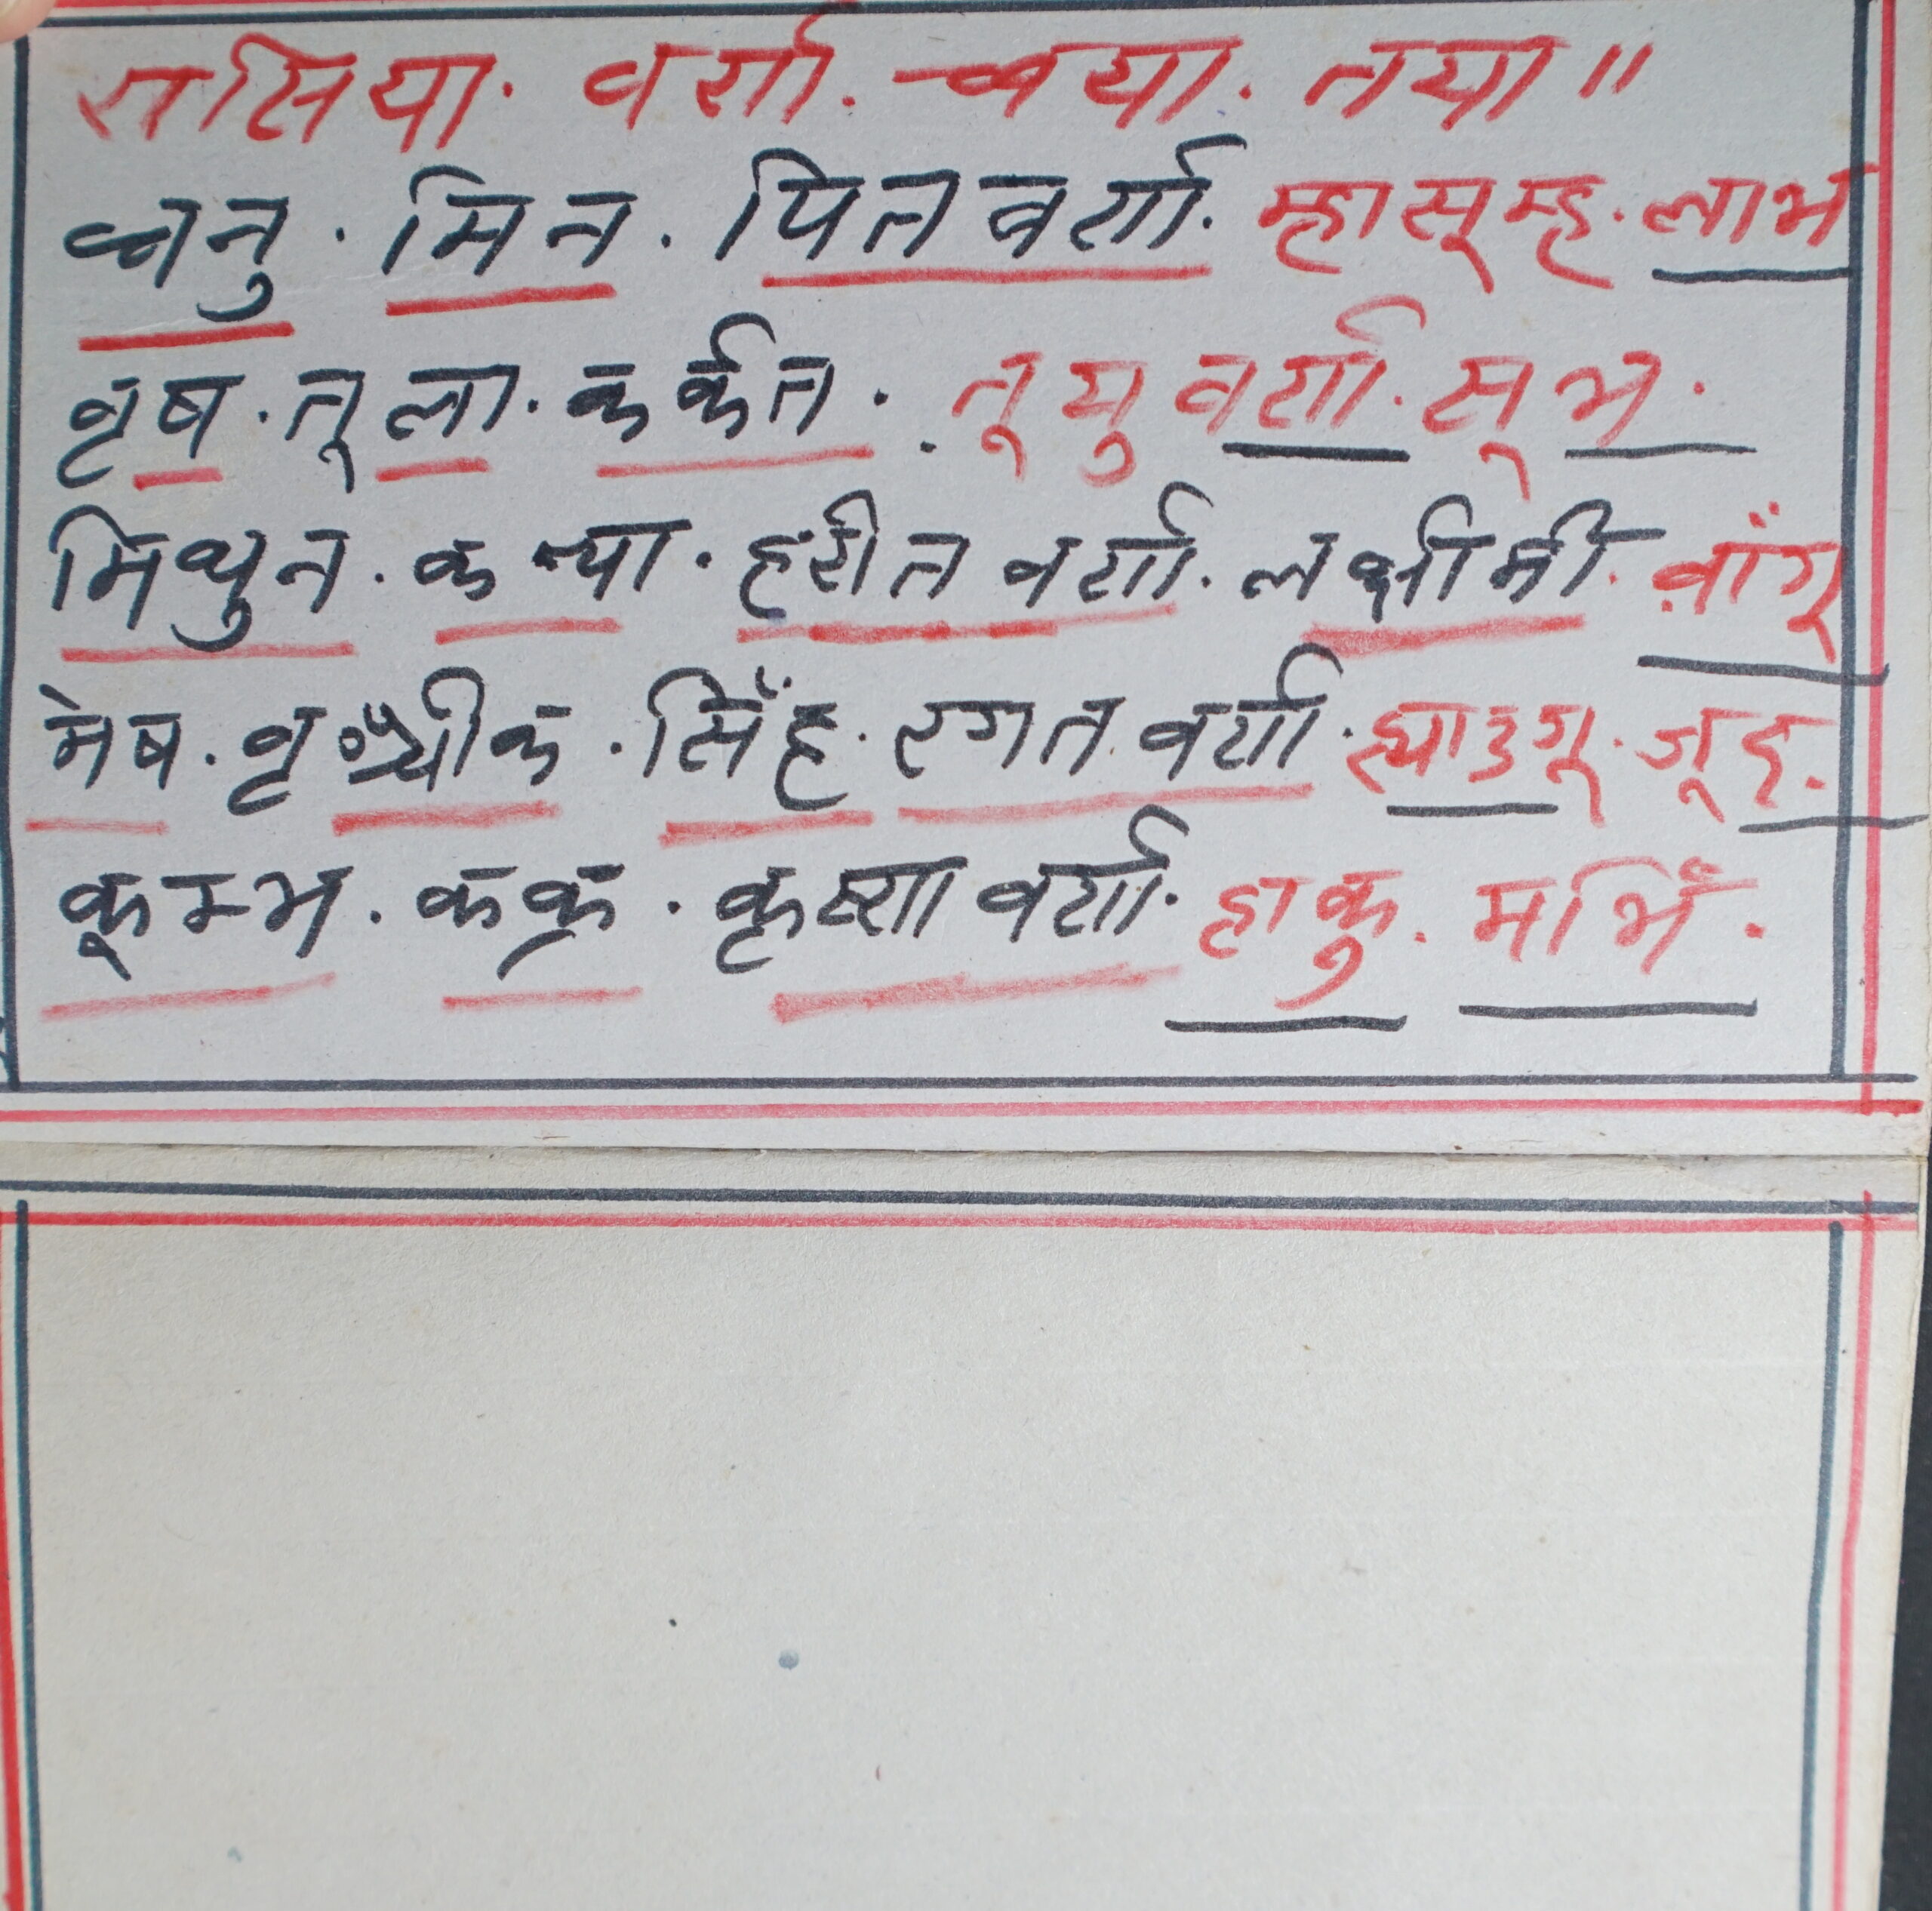 रासिया. वर्ण. च्वया. तया॥
धनु. मिन. पित वर्ण. म्हासूम्ह. लाभ
वृष. तूला. कर्कत. तूयु वर्ण. सूभ.
मिथुन. कन्या. हरीत वर्ण. लक्षीमी. वाँगू
मेष. वृश्चीक. सिँह. रगत वर्ण. ह्याउगू. जूइ.
कूम्भ. कक्र. कृष्ण वर्ण. हाकु. मभिँ.